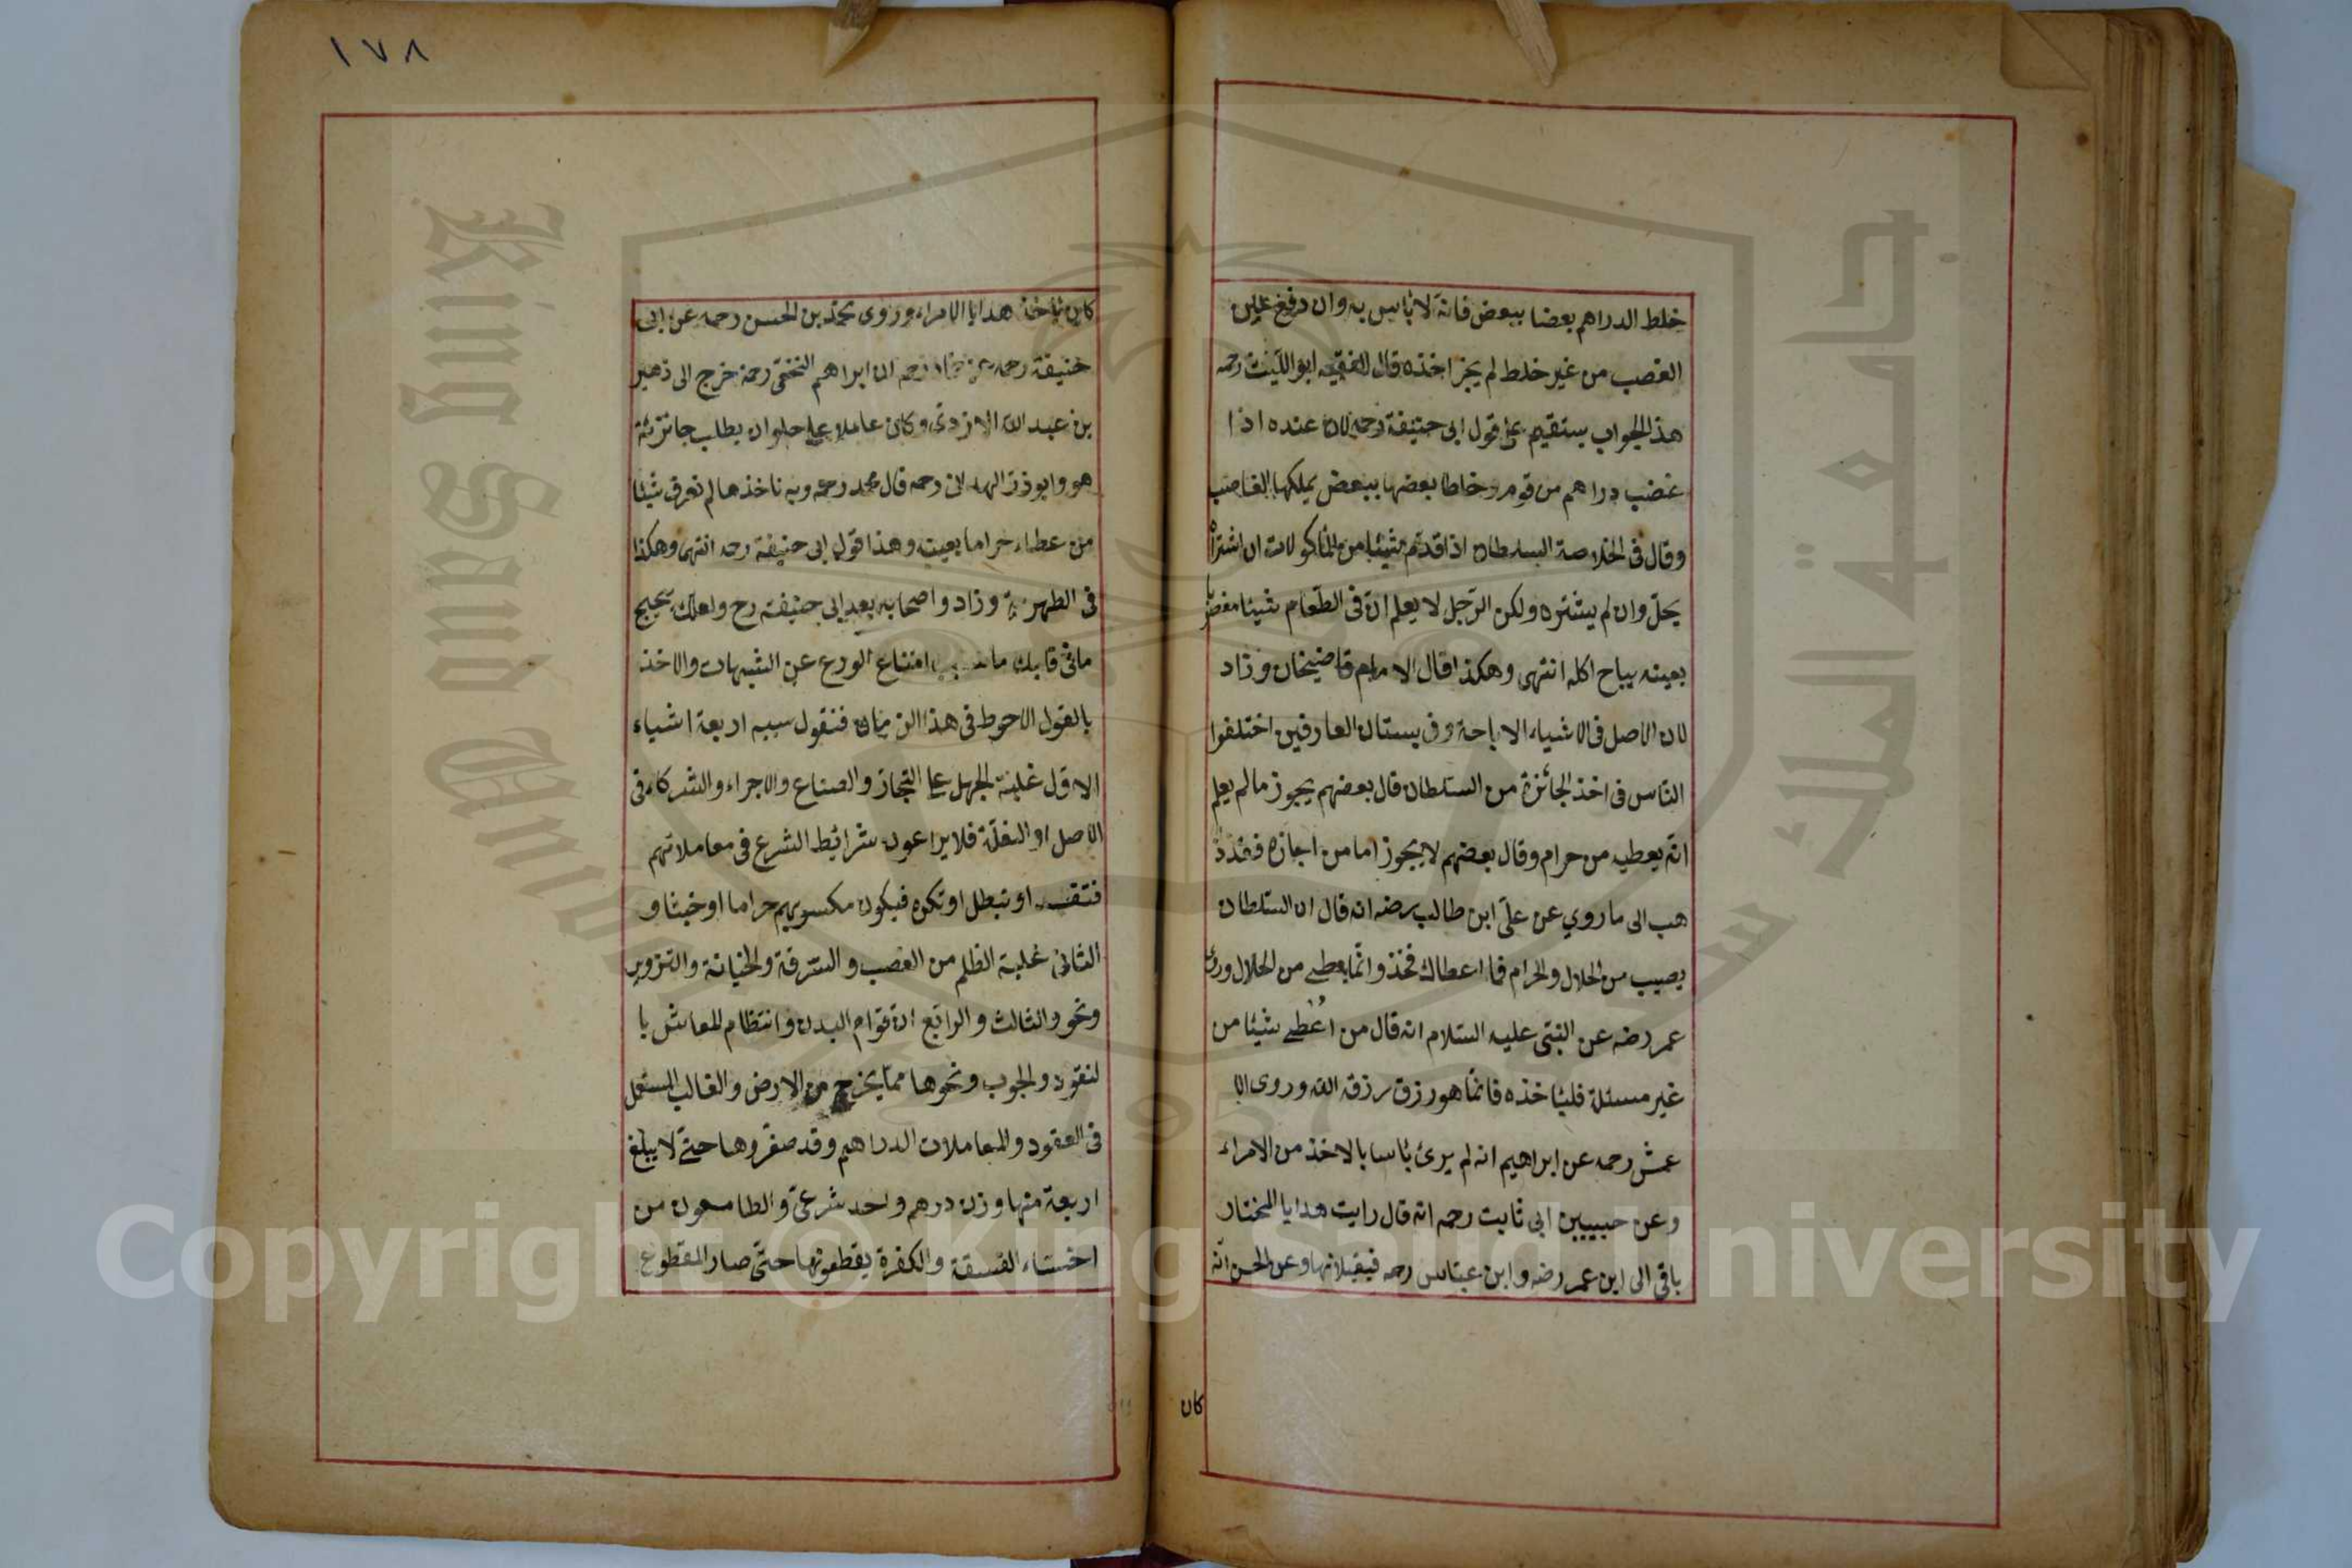 خلط الدراهم بعضا ببعض فانه لا بأس به وان دفع عين
الغصب من غير خلط لم يجز اخذه قال الفقيه ابو الليث رحمه
هذا الجواب يستقيم على قول ابى حنيفة رحمه لان عنده اذا
غصب دراهم من قوم وخلط بعضها ببعض يملكها الغاصب
وقال فى الخلاصة السلطان اذا قدّم شيئا من المأكولات ان اشتراه
يحلّ وان لم يشتره ولكن الرّجل لا يعلم انّ فى الطّعام شيئا مغصوبا
بعينه يباح اكله انتهى وهكذا قال الامام قاضيخان وزاد
لان الاصل فى الاشياء الاباحة وفى بستان العارفين اختلفوا
النّاس فى اخذ الجائزة من السّلطان قال بعضهم يجوز مالم يعلم
انّه يعطيه من حرام وقال بعضهم لا يجوز اما من اجازه فقد ذ
هب الى ما روي عن علىّ ابن طالب رضه انه قال ان السّلطان
يصيب من الحلال والحرام فما اعطاك فخذ وانّما يعطى من الحلال وروى
عمر رضه عن النّبىّ عليه السّلام انه قال من اُعطى شيئا من
غير مسئلة فليأخذه فانّما هو رزق رزقه الله وروى الا
عمش رحمه عن ابراهيم انه لم يرى بأسا بالاخذ من الامراء
وعن حبيبين ابى ثابت رحمه انه قال رايت هدايا المختار
باقى الى ابن عمر رضه وابن عبّاس رحمه فيقبلانها وعن الحسن انّه
كان
١٧٨
كان يأخذ هدايا الامراء وروى محمّد بن الحسن رحمه عن ابى
حنيفة رحمه عن حمّاد رحمه ان ابراهيم النخعّى رحمه خرج الى زهير
بن عبد الله الازدىّ وكان عاملا على حلوان يطلب جائزته
هو وابو ذرّ الهمدانى رحمه قال محمد رحمه وبه ناخذ مالم نعرف شيئا
من عطاء حراما بعينه وهذا قول ابى حنيفة رحمه انتهى وهكذا
فى الظهرية وزاد واصحابه بعد ابى حنيفة رح ولعلّك
امتناع الورع عن الشبهات والاخذ
بالقول الاحوط فى هذا الزمان فنقول سببه اربعة اشياء
الاوّل غلبة الجهل على التجّار والصنّاع والاجراء والشركاء فى
الاصل او الغلّة فلا يراعون شرائط الشرع فى معاملاتهم
فتفسد او تبطل او تكره فيكون مكسوبهم حراما او خبيثا و
الثانى غلبة الظلم من الغصب والسّرقة والخيانة والتزوير
ونحو والثالث والرابع انّ قوام البدن وانتظام المعاش با
لنقود والحبوب ونحوها ممّا يخرج من الارض والغالب المستعمل
فى العقود والمعاملات الدراهم وقد صغّروها حتّى لا يبلغ
اربعة منها وزن درهم واحد شرعىّ والطامعون من
اخسّاء الفسقة والكفرة يقطعونها حتّى صار المقطوع
جامعة الملك سعود
King Saud University
1957
Copyright © King Saud University